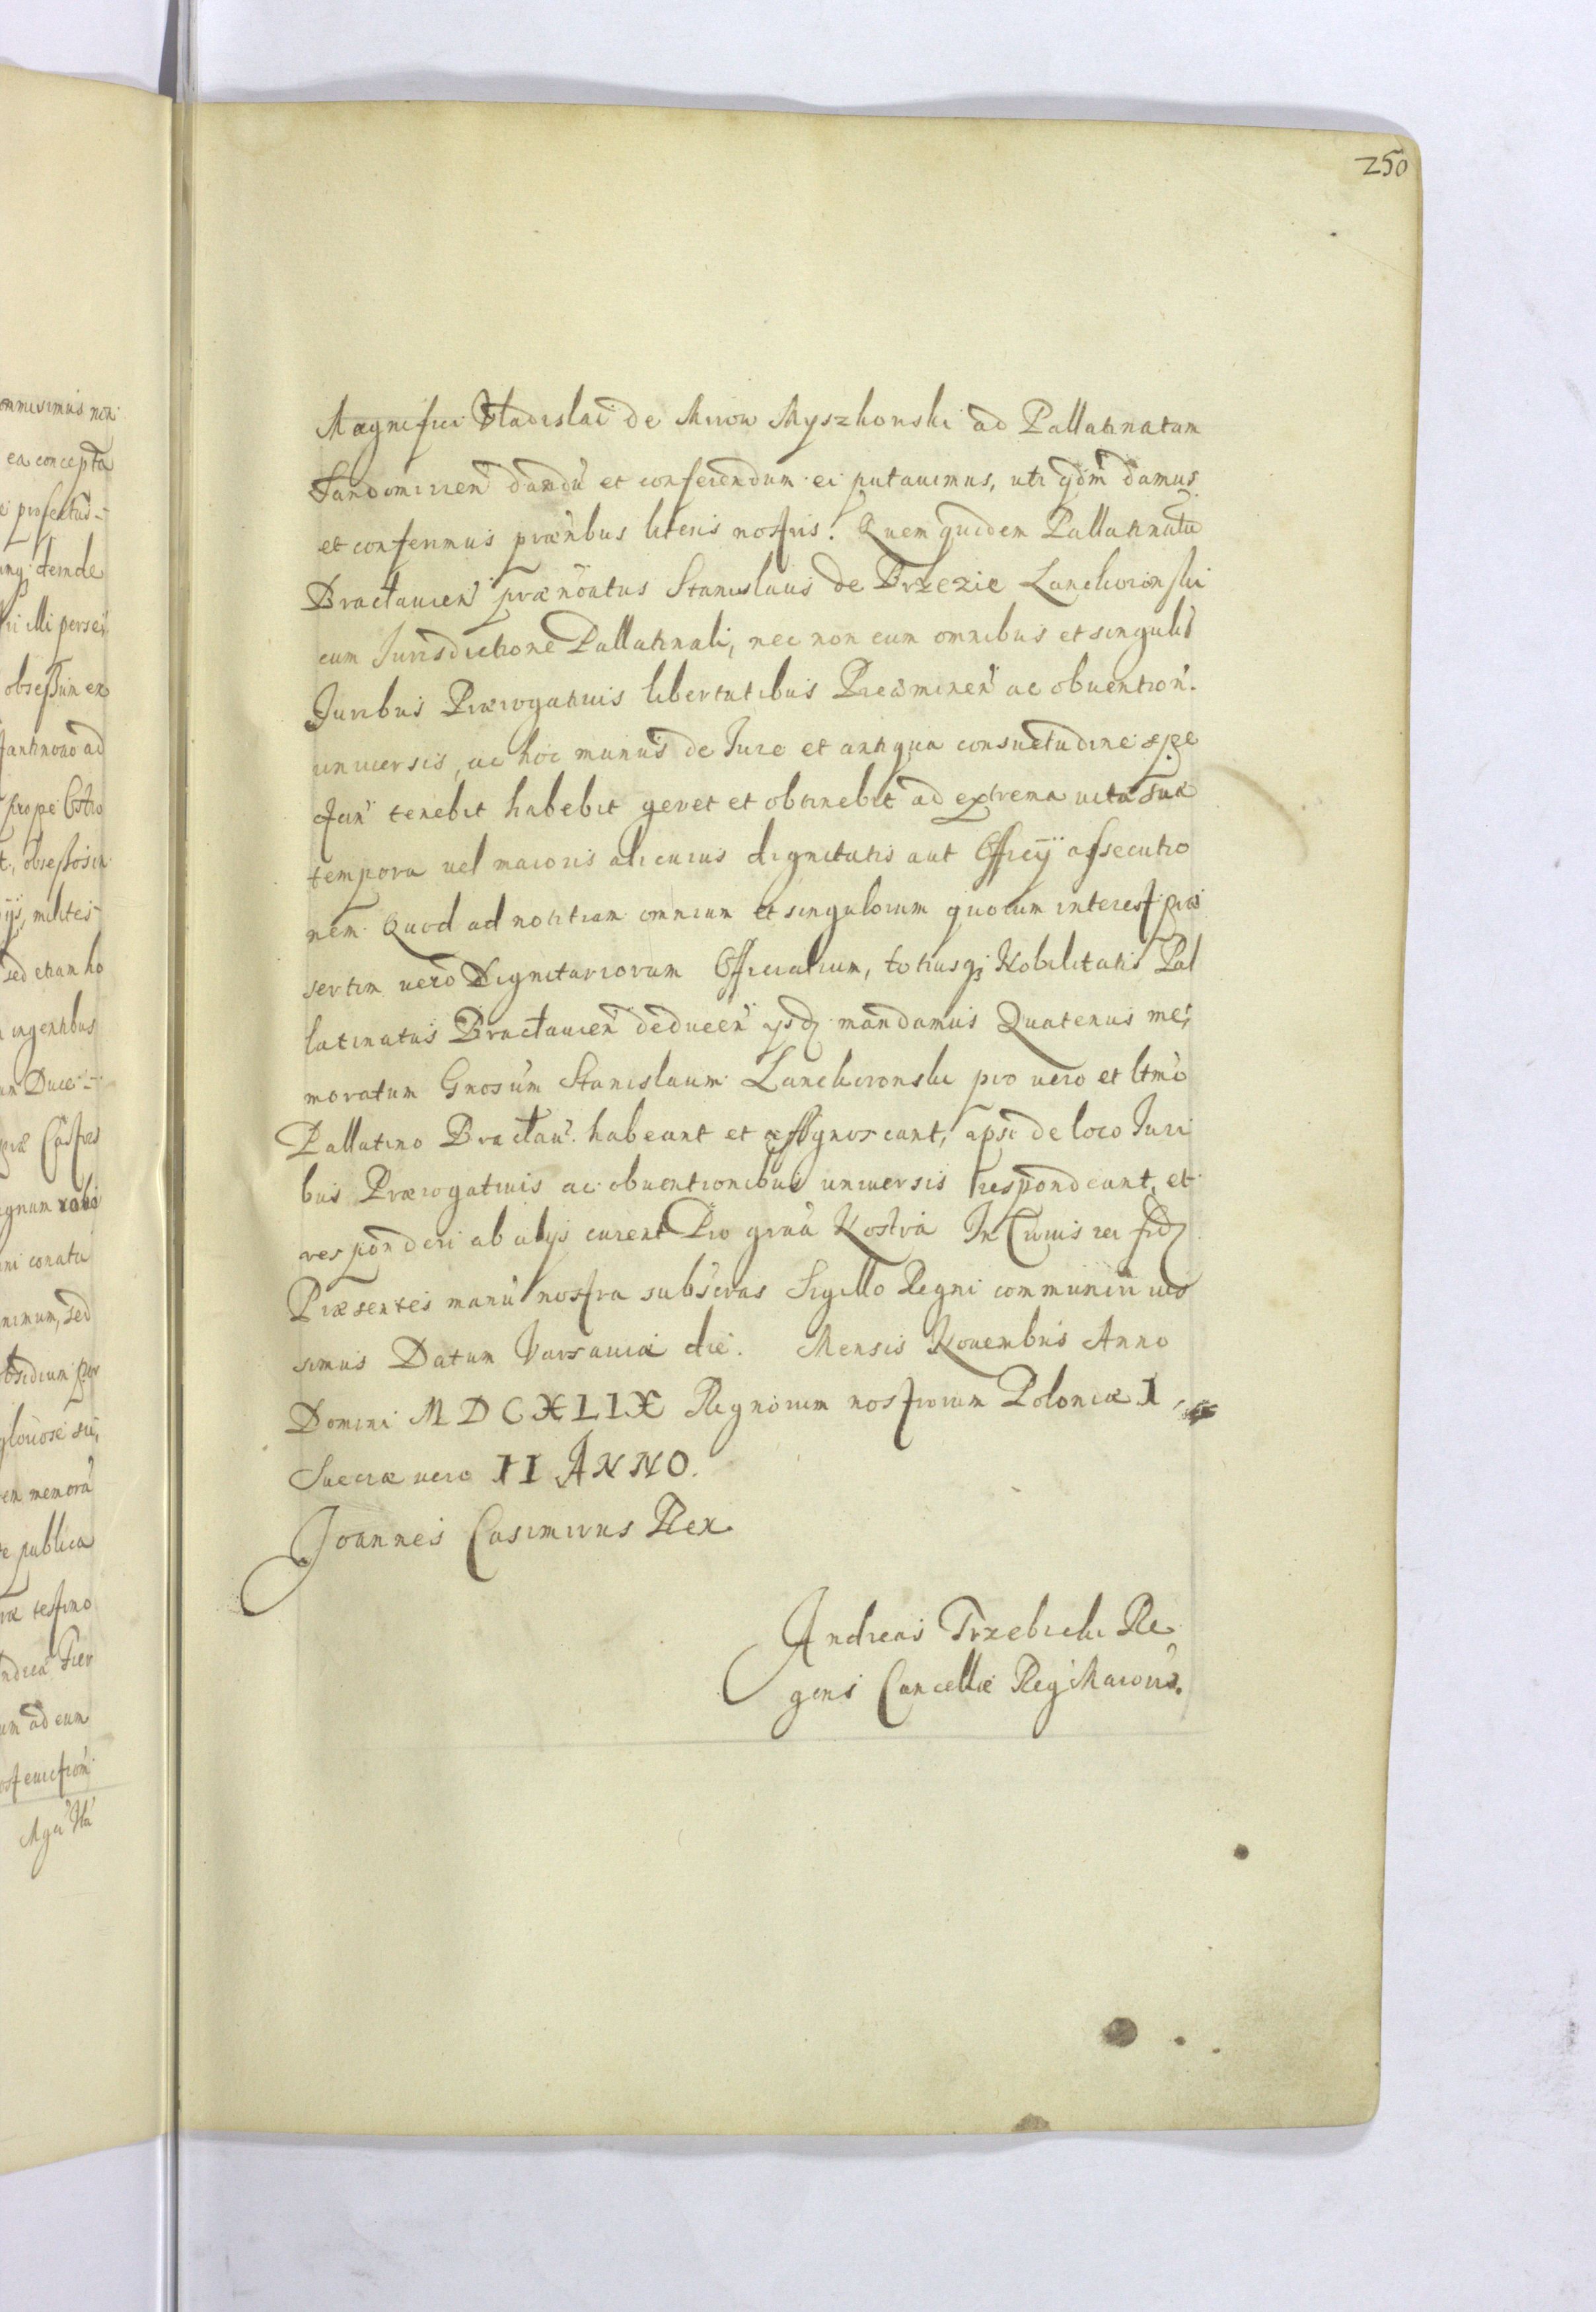 250
Magnifici Vladislai de Mirow Myszkowski ad Pallatinatum
Sandomirien dandu et conferendum ei putauimus, uti qdm damus
et conferimus præntibus literis nostris. Quem quidem Pallatinatu
Bractauien prænoatus Stanislaus de Brzezie Lanckoronski
cum Jurisdictione Pallatinali, nec non cum omnibus et singulis
Juribus Prærogatiuis libertatibus Preæminen ac obuention.
uniuersis, ac hoc munus de Jure et antiqua consuetudine spe
ctan tenebit habebit geret et obtinebit ad extrema uitæ suæ
tempora uel maioris alicuius dignitatis aut Officij assecutio
nem. Quod ad notitiam omnium et singulorum quorum interest præ
sertim uero Dignitariorum Officialium, totiusq3 Nobilitatis Pal
latinatus Bractauien deducen ijsdē mandamus Quatenus me,
moratum Gnosum Stanislaum Lanckoronski pro uero et ltmo
Pallatino Bractau. habeant et agnoscant, ipsi de loco Juri
bus Prærogatiuis ac obuentionibus uniuersis respondeant, et
responderi ab alijs curent Pro grua Nostra In Cuius rei fidē
Præsentes manu nostra subscras Sigillo Regni communiri ius
simus Datum Varsauiæ die. Mensis Nouembris Anno
Domini MDCXLIX Regnorum nostrorum Poloniæ I,
Sueciæ uero II ANNO.
Joannes Casimirus Rex
Andreas Trzebicki Re
gens Cancellæ Reg Maioris.
ea concepta
deinde
illi
ad
prope Ostro
milites
sed etiam ho
ingentibus
Duce
Castres
conatu
nimum, sed
publica
ad eum